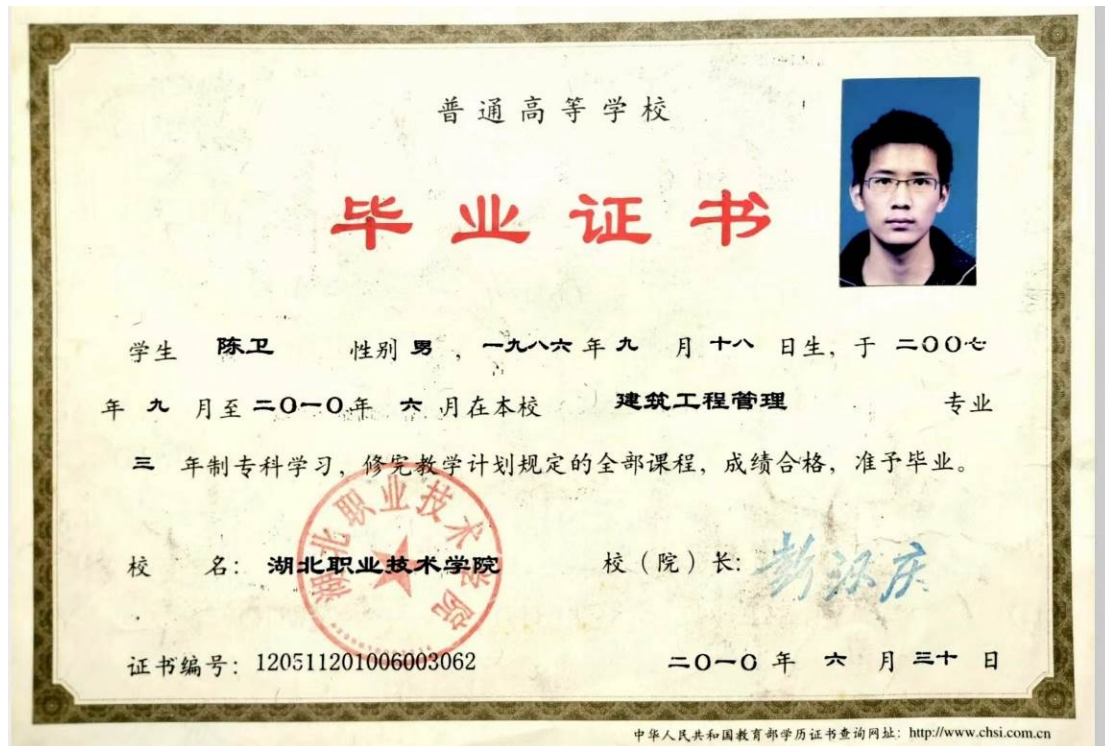 普通高等学校
毕业证书
学生 陈卫 性别 男 ,一九八六 年 九 月 十八 日生, 于 二00七
年 九 月至 二0一0 年 六 月在本校 建筑工程管理 专业
三 年制专科学习, 修完教学计划规定的全部课程, 成绩合格, 准予毕业。
湖北职业技术学院
校 名: 湖北职业技术学院 校(院)长: 彭汉庆
证书编号: 120511201006003062 二0一0 年 六 月 三十 日
中华人民共和国教育部学历证书查询网址: http://www.chsi.com.cn